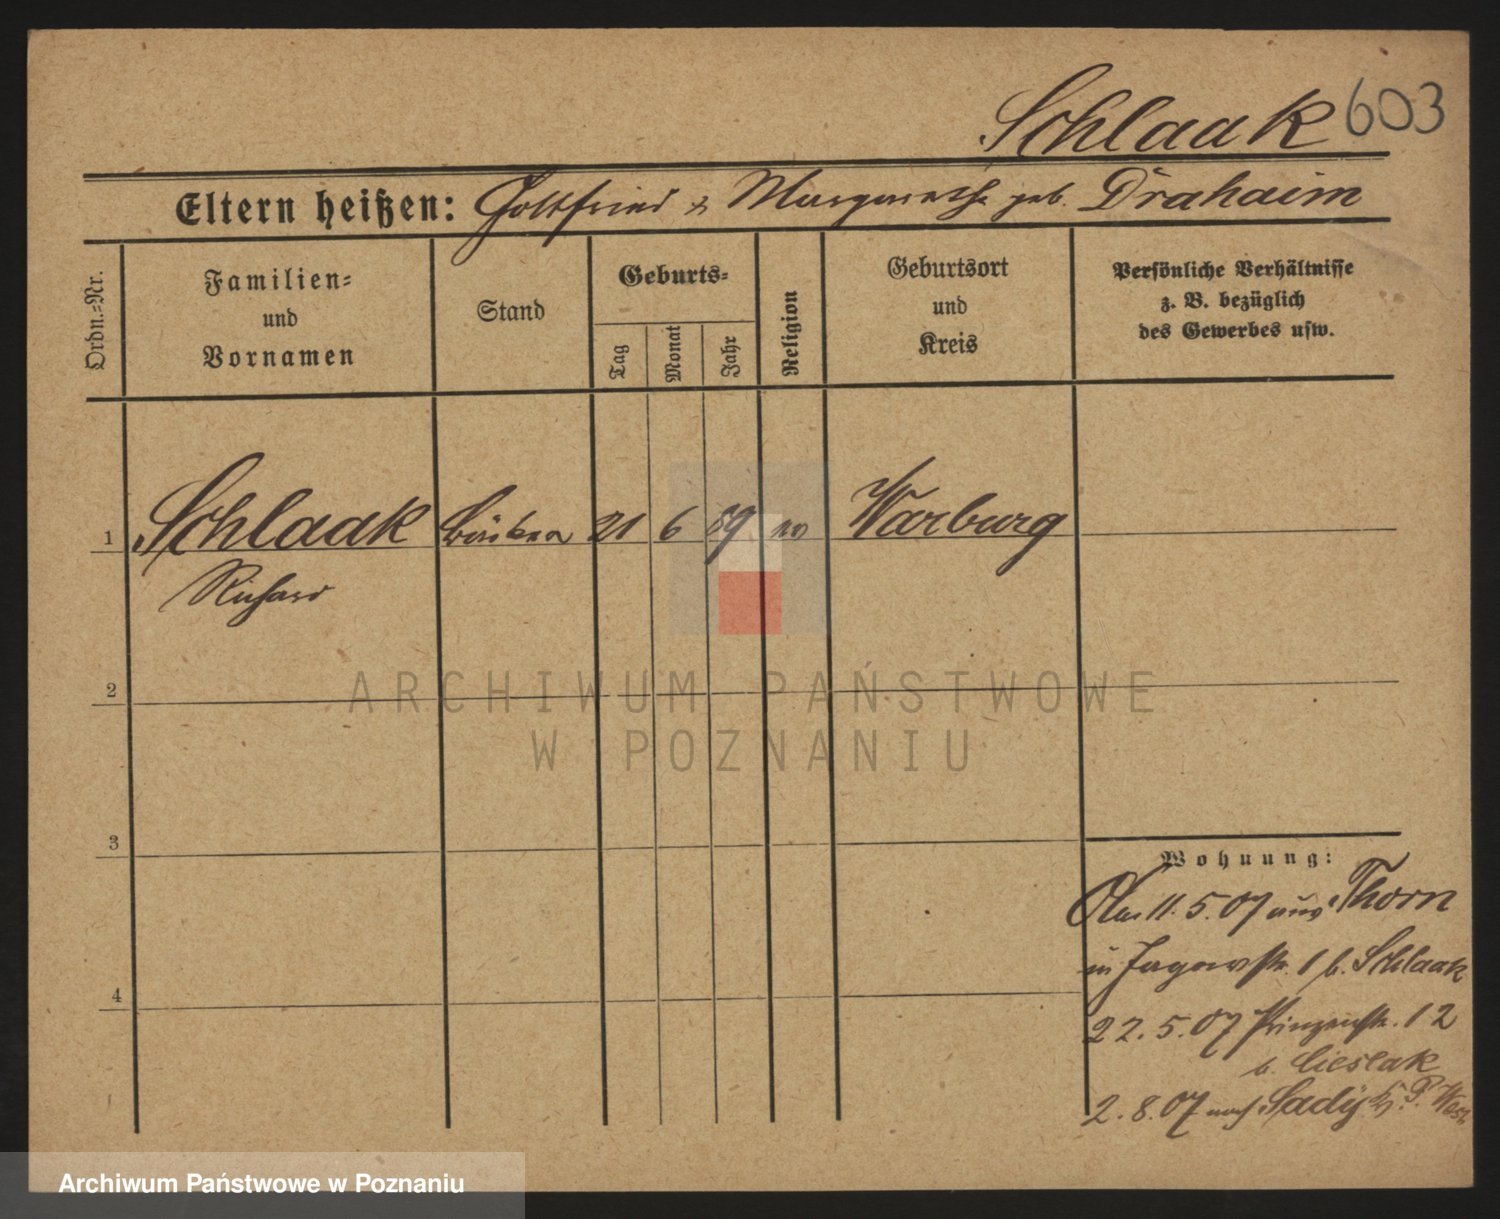 Schlaak 603
Eltern heißen: Gottfried & Margarethe geb. Draheim
Ordn.-Nr.
Familien-
und
Vornamen
Stand
Geburts-
Tag
Monat
Jahr
Religion
Geburtsort
und
Kreis
Persönliche Verhältnisse
z. B. bezüglich
des Gewerbes usw.
1 Schlaak 21 6 59 ev Warburg
Richard
2
ARCHIWUM PAŃSTWOWE
W POZNANIU
3
4
Wohnung:
11.5.07 aus Thorn
in Jagowstr. 1 b. Schlaak
22.5.07 Prinzenstr. 12
b. Cieslak
2.8.07 nach Sady Kr. P. West
Archiwum Państwowe w Poznaniu